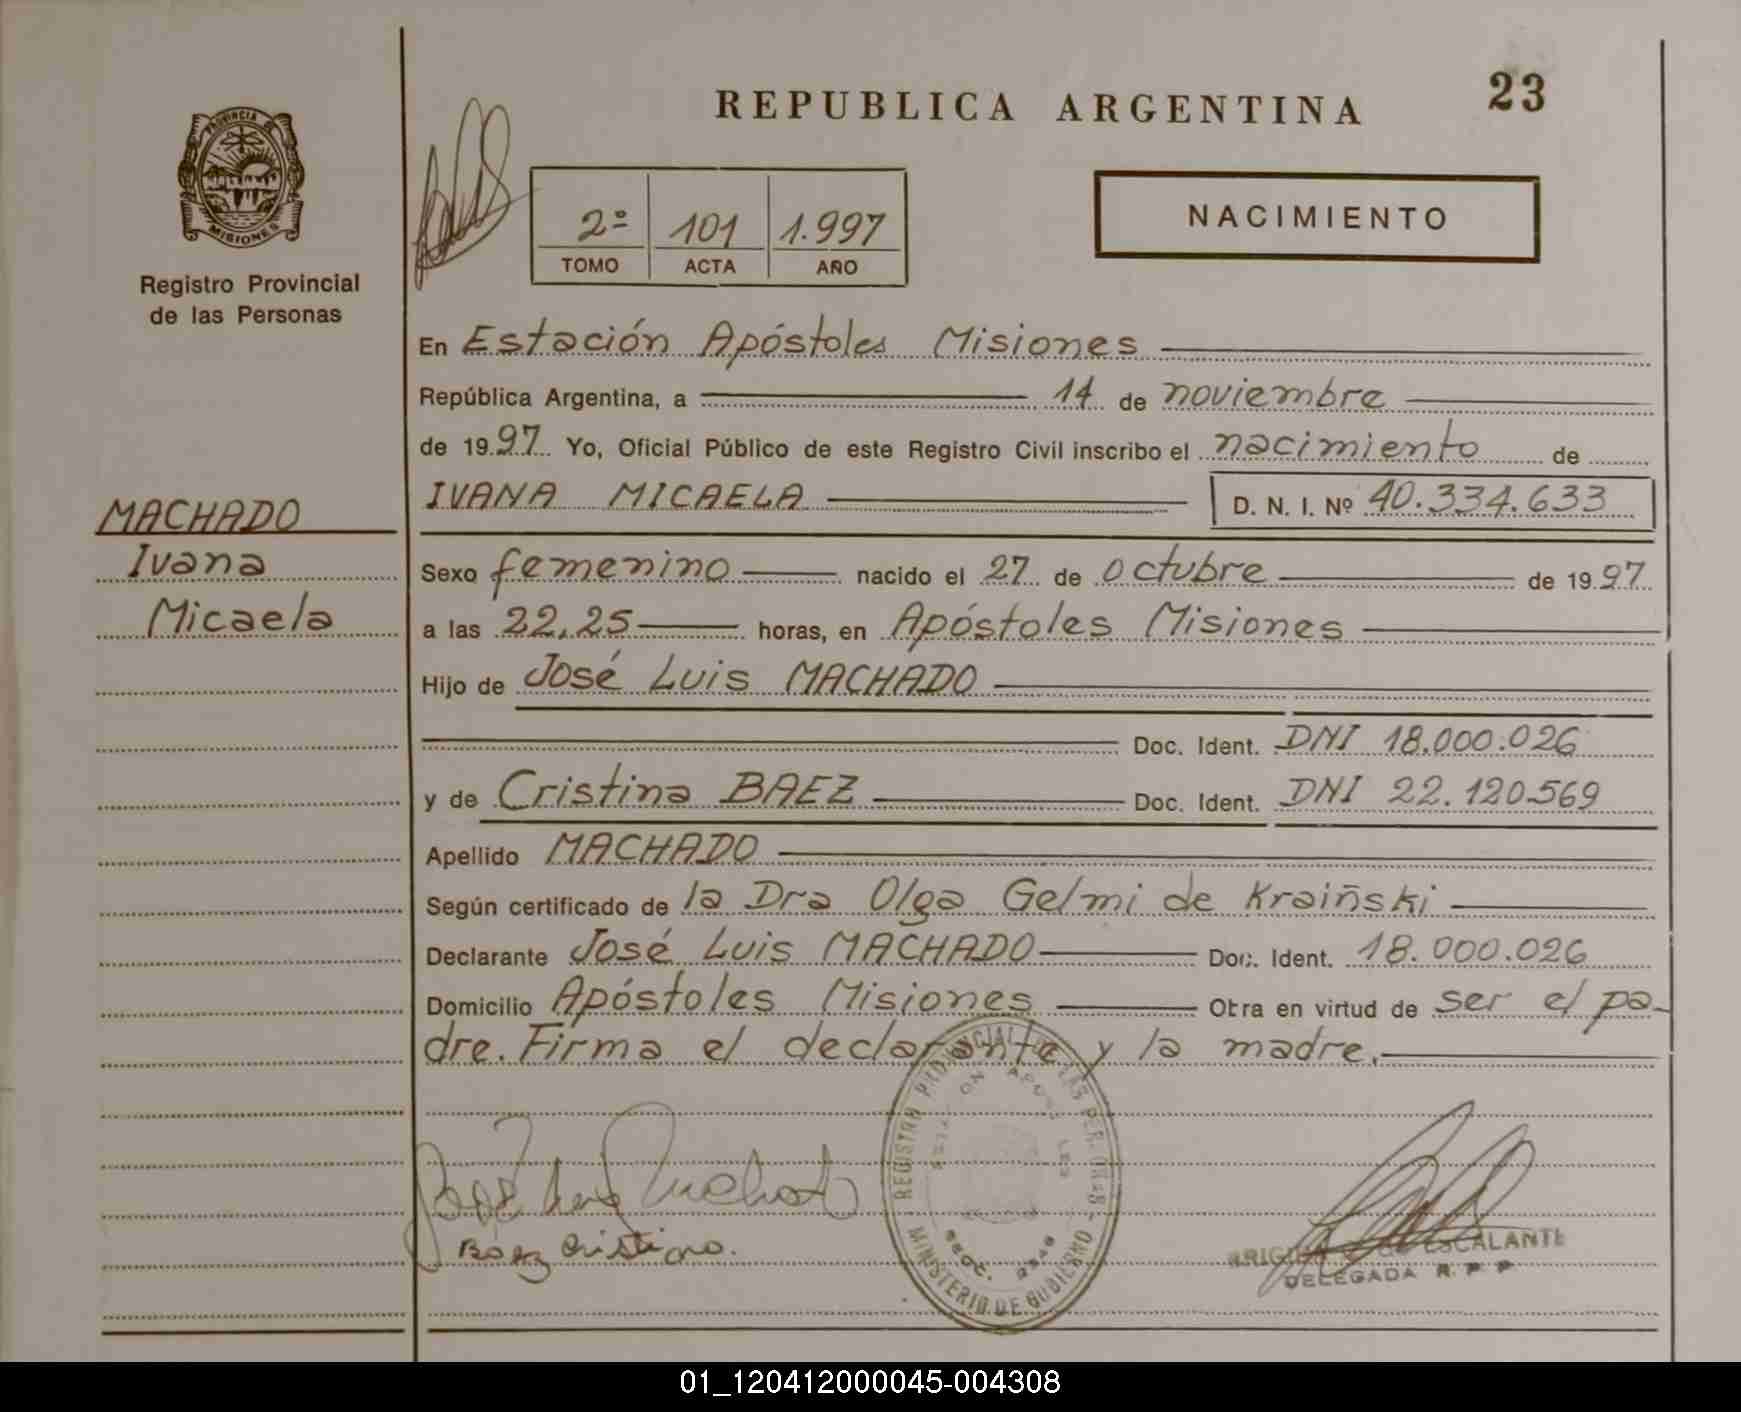 REPUBLICA ARGENTINA
23
PROVINCIA DE
MISIONES
Registro Provincial
de las Personas
2º 101 1.997
TOMO ACTA AÑO
NACIMIENTO
En Estación Apóstoles Misiones
República Argentina, a 14 de noviembre
de 1997 Yo, Oficial Público de este Registro Civil inscribo el nacimiento de
IVANA MICAELA D. N. I. Nº 40.334.633
MACHADO
Ivana
Micaela
Sexo femenino nacido el 27 de octubre de 1997
a las 22,25 horas, en Apóstoles Misiones
Hijo de José Luis MACHADO
Doc. Ident. DNI 18.000.026
y de Cristina BAEZ Doc. Ident. DNI 22.120.569
Apellido MACHADO
Según certificado de la Dra Olga Gelmi de Kraiñski
Declarante José Luis MACHADO Doc. Ident. 18.000.026
Domicilio Apóstoles Misiones Obra en virtud de ser el pa-
dre. Firma el declarante y la madre.
REGISTRO PROVINCIAL DE LAS PERSONAS
MINISTERIO DE GOBIERNO
José Luis Machado
Báez Cristina.
DE ESCALANTE
DELEGADA R. P. P
01_120412000045-004308